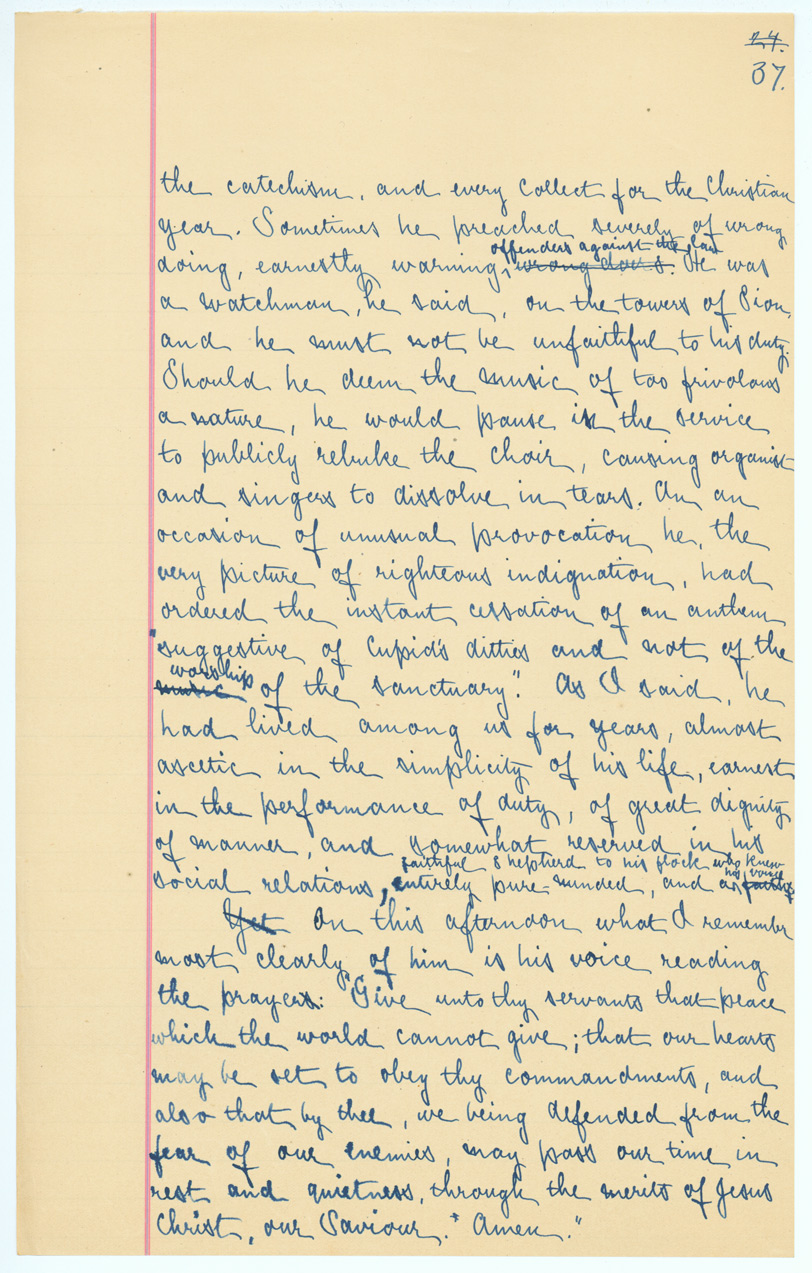 24.
37.
the catechism, and every collect for the Christian
year. Sometimes he preached severely of wrong
offenders against the law
doing, earnestly warning, wrong doers. He was
a watchman, he said, on the towers of Sion,
and he must not be unfaithful to his duty.
Should he deem the music of too frivolous
a nature, he would pause in the service
to publicly rebuke the choir, causing organist
and singers to dissolve in tears. On an
occasion of unusual provocation he, the
very picture of righteous indignation, had
ordered the instant cessation of an anthem
"suggestive of Cupid's ditties and not of the
worship
music of the sanctuary". As I said, he
had lived among us for years, almost
ascetic in the simplicity of his life, earnest
in the performance of duty, of great dignity
of manner, and somewhat reserved in his
faithful shepherd to his flock who knew
his voice
social relations, entirely pure-minded, and a
Yet On this afternoon what I remember
most clearly of him is his voice reading
the prayers: "Give unto thy servants that peace
which the world cannot give; that our hearts
may be set to obey thy commandments, and
also that by thee, we being defended from the
fear of our enemies, may pass our time in
rest and quietness, through the merits of Jesus
Christ, our Saviour. Amen."